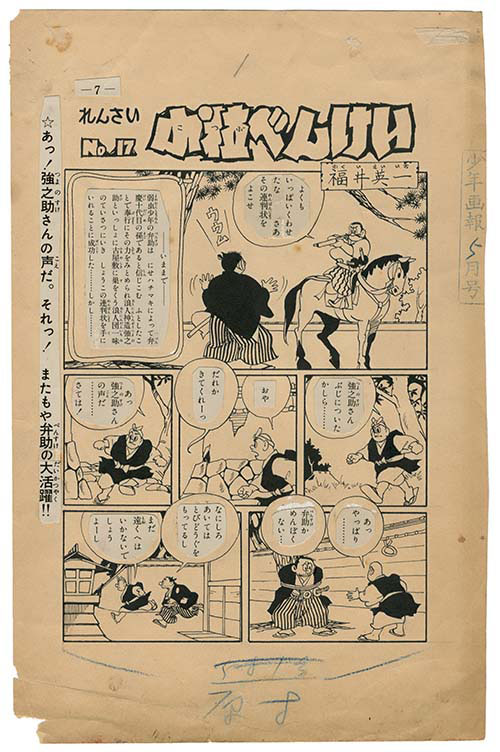 ―7―
れんさい
No.17
小粒べんけい
福井英一
少年画報5月号
☆あっ！強之助さんの声だ。それっ！　またもや弁助の大活躍!!
よくも
いっぱいくわせ
たな　さあ
その連判状を
よこせ
ウウム
―いままで―
弱虫少年の弁助は　にせハチマキによって弁
慶十代目の孫であると信じこむ　ふとしたこ
とで奉行にその力をみとめられ浪人神造強之
助といっしょに古屋敷に巣をくう浪人団一味
のていさつにいき　しょうこの連判状を手に
いれることに成功した……しかし……
強之助さん
ぶじについた
かしら……
おや
だれか
きてくれーっ
あっ
強之助さん
の声だ
さては！
あっ
やっぱり
……
弁助か
めんぼく
ない
なにしろ
あいては
とびどうぐを
もってるし
まだ
遠くへは
いかないで
しょう
よーし